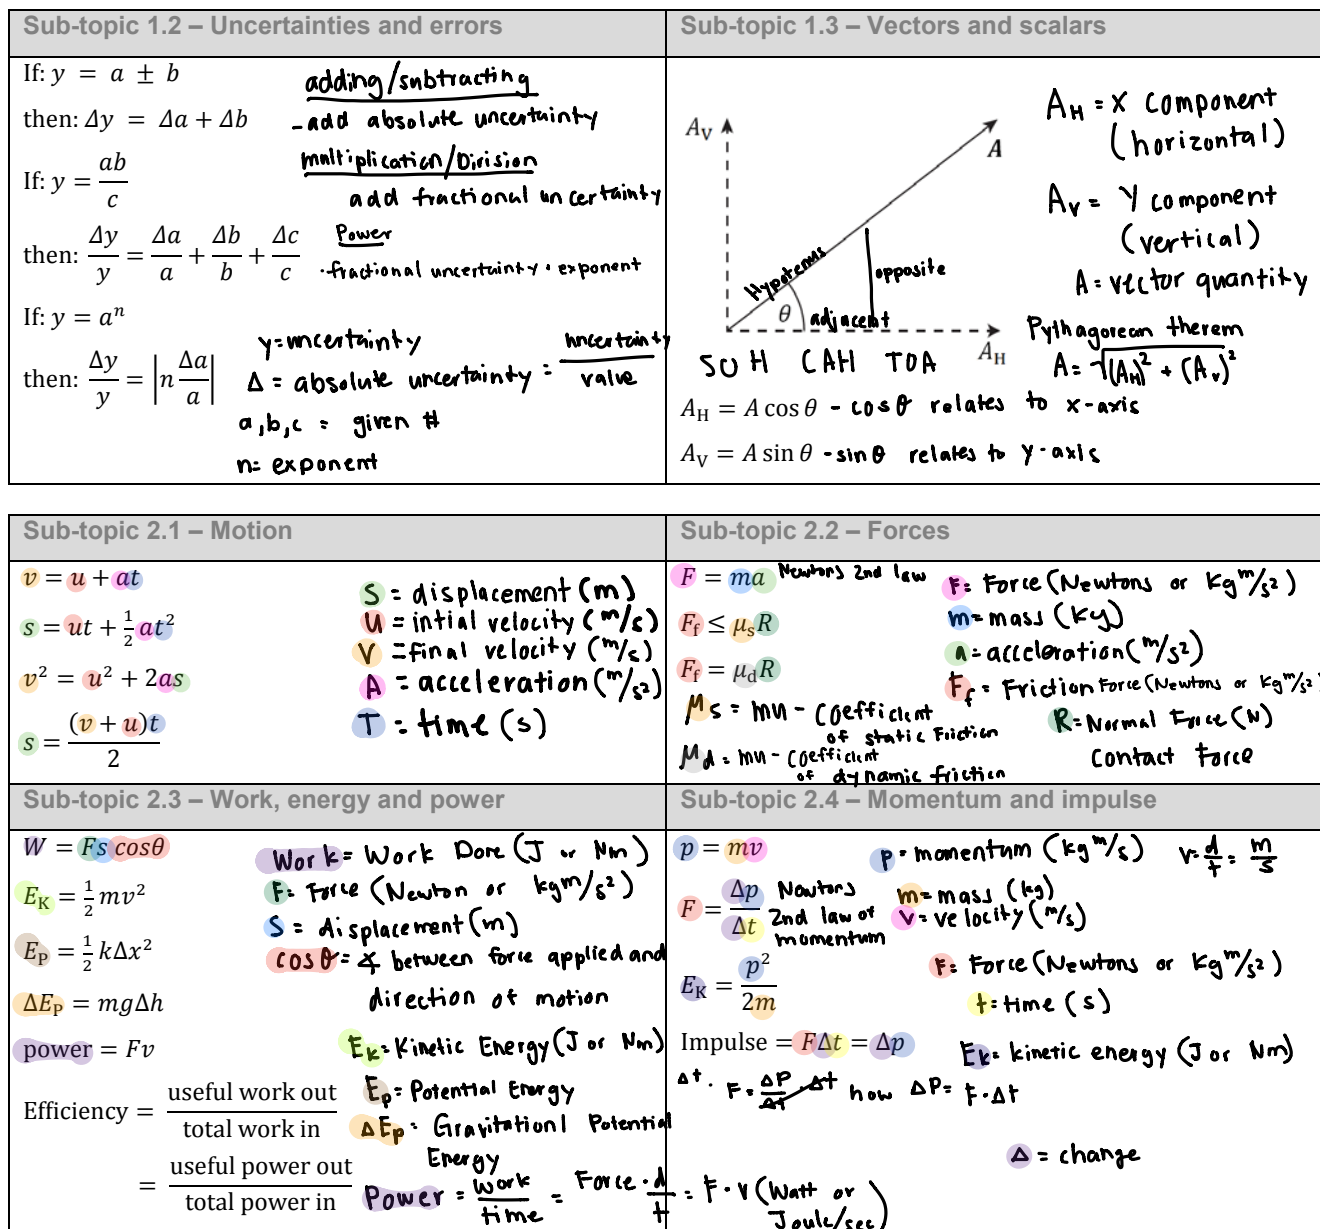 Sub-topic 1.2 – Uncertainties and errors
If: y = a ± b
then: Δy = Δa + Δb
If: y = ab/c
then: Δy/y = Δa/a + Δb/b + Δc/c
If: y = aⁿ
then: Δy/y = |n Δa/a|
adding/subtracting
- add absolute uncertainty
multiplication/Division
add fractional uncertainty
Power
· fractional uncertainty · exponent
y = uncertainty
Δ = absolute uncertainty = uncertainty/value
a,b,c = given #
n = exponent
Sub-topic 1.3 – Vectors and scalars
A_V
A
Hypotenus
opposite
θ
adjacent
A_H
A_H = X component
(horizontal)
A_V = Y component
(vertical)
A = vector quantity
Pythagorean therem
A = √(A_H)² + (A_V)²
SOH CAH TOA
A_H = A cos θ - cos θ relates to x-axis
A_V = A sin θ - sin θ relates to y-axis
Sub-topic 2.1 – Motion
v = u + at
s = ut + ½at²
v² = u² + 2as
s = (v + u)t/2
S = displacement (m)
U = intial velocity (m/s)
V = final velocity (m/s)
A = acceleration (m/s²)
T = time (s)
Sub-topic 2.2 – Forces
F = ma Newtons 2nd law
F_f ≤ μ_s R
F_f = μ_d R
μ_s = mu - coefficient
of static friction
μ_d = mu - coefficient
of dynamic friction
F = Force (Newtons or kg m/s²)
m = mass (kg)
a = acceleration (m/s²)
F_f = Friction Force (Newtons or kg m/s²)
R = Normal Force (N)
Contact Force
Sub-topic 2.3 – Work, energy and power
W = Fs cosθ
E_K = ½ mv²
E_P = ½ kΔx²
ΔE_P = mgΔh
power = Fv
Efficiency = useful work out/total work in
= useful power out/total power in
Work = Work Done (J or Nm)
F = Force (Newton or kg m/s²)
S = displacement (m)
cos θ = ∡ between force applied and
direction of motion
E_k = Kinetic Energy (J or Nm)
E_p = Potential Energy
ΔE_p = Gravitationl Potential
Energy
Power = work/time = Force · d/t = F · v (Watt or
Joule/sec)
Sub-topic 2.4 – Momentum and impulse
p = mv
F = Δp/Δt Newtons
2nd law of
momentum
E_K = p²/2m
Impulse = FΔt = Δp
Δt · F = ΔP/Δt · Δt how ΔP = F · Δt
p = momentum (kg m/s) v = d/t = m/s
m = mass (kg)
V = velocity (m/s)
F = Force (Newtons or kg m/s²)
t = time (s)
E_k = kinetic energy (J or Nm)
Δ = change